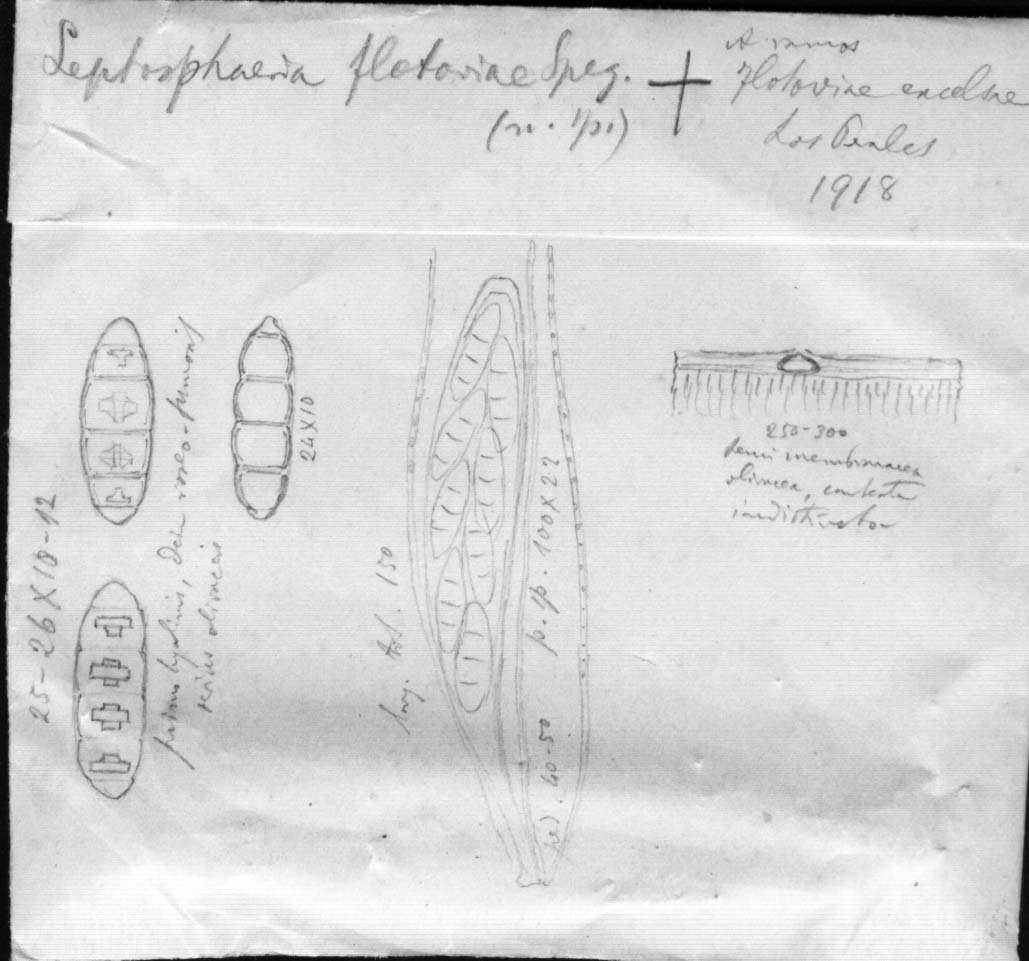 Leptosphaeria flotoviae Speg.
(n. sp.)
A ramos
Flotoviae excelsae
Los Perales
1918
25-26 X 10-12
primus hyalinis, dein roseo-fumosis
serius olivaceis
24X10
long. tot. 150
p. sp. 100X22
ped. 40-50
250-300
semi membranacea
olivacea, contextu
indistincto